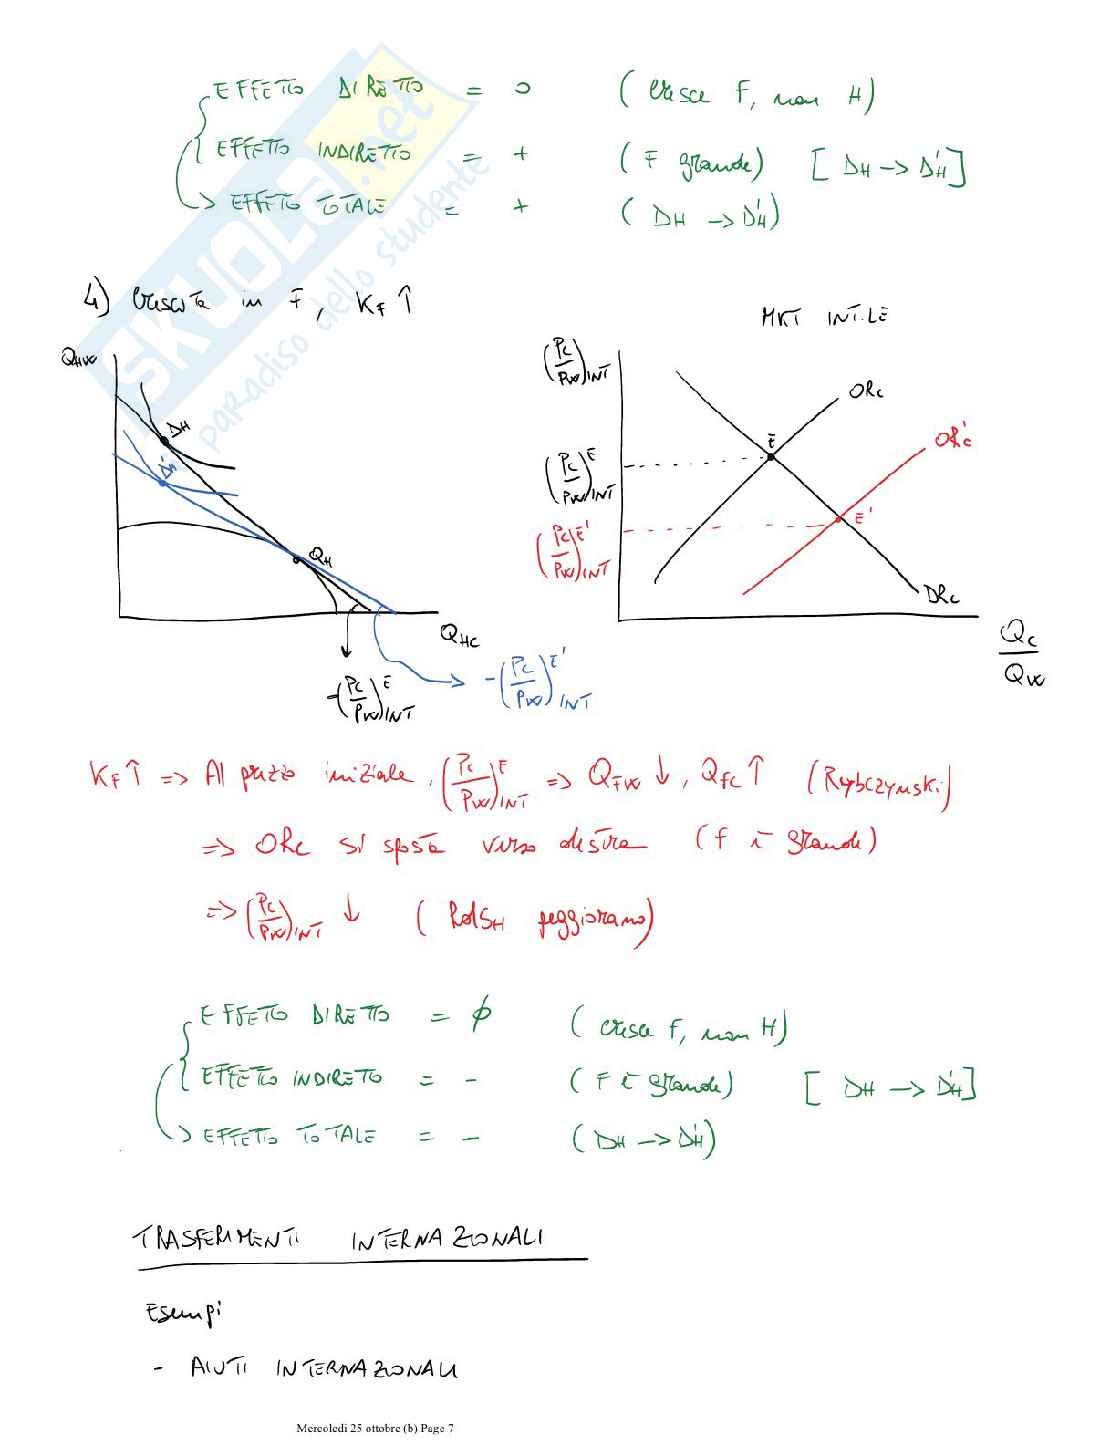 EFFETTO DIRETTO = 0 (cresce F, non H)
EFFETTO INDIRETTO = + (F grande) [DH -> D'H]
EFFETTO TOTALE = + (DH -> D'H)
SKUOLA.net
paradiso dello studente
4) Crescita in F, KF↑
MKT INT.LE
QHW
DH
D'H
QH
QHC
-(PC/PW)^E INT
-(PC/PW)^E' INT
(PC/PW) INT
ORC
OR'C
E
(PC/PW)^E INT
E'
(PC/PW)^E' INT
DRC
QC/QW
KF↑ => Al prezzo iniziale, (PC/PW)^E INT => QFW ↓, QFC ↑ (Rybczynski)
=> ORC si sposta verso destra (F è grande)
=> (PC/PW) INT ↓ (RdSH peggiorano)
EFFETTO DIRETTO = ϕ (cresce F, non H)
EFFETTO INDIRETTO = - (F è grande) [DH -> D'H]
EFFETTO TOTALE = - (DH -> D'H)
TRASFERIMENTI INTERNAZIONALI
Esempi
- AIUTI INTERNAZIONALI
Mercoledì 25 ottobre (b) Page 7